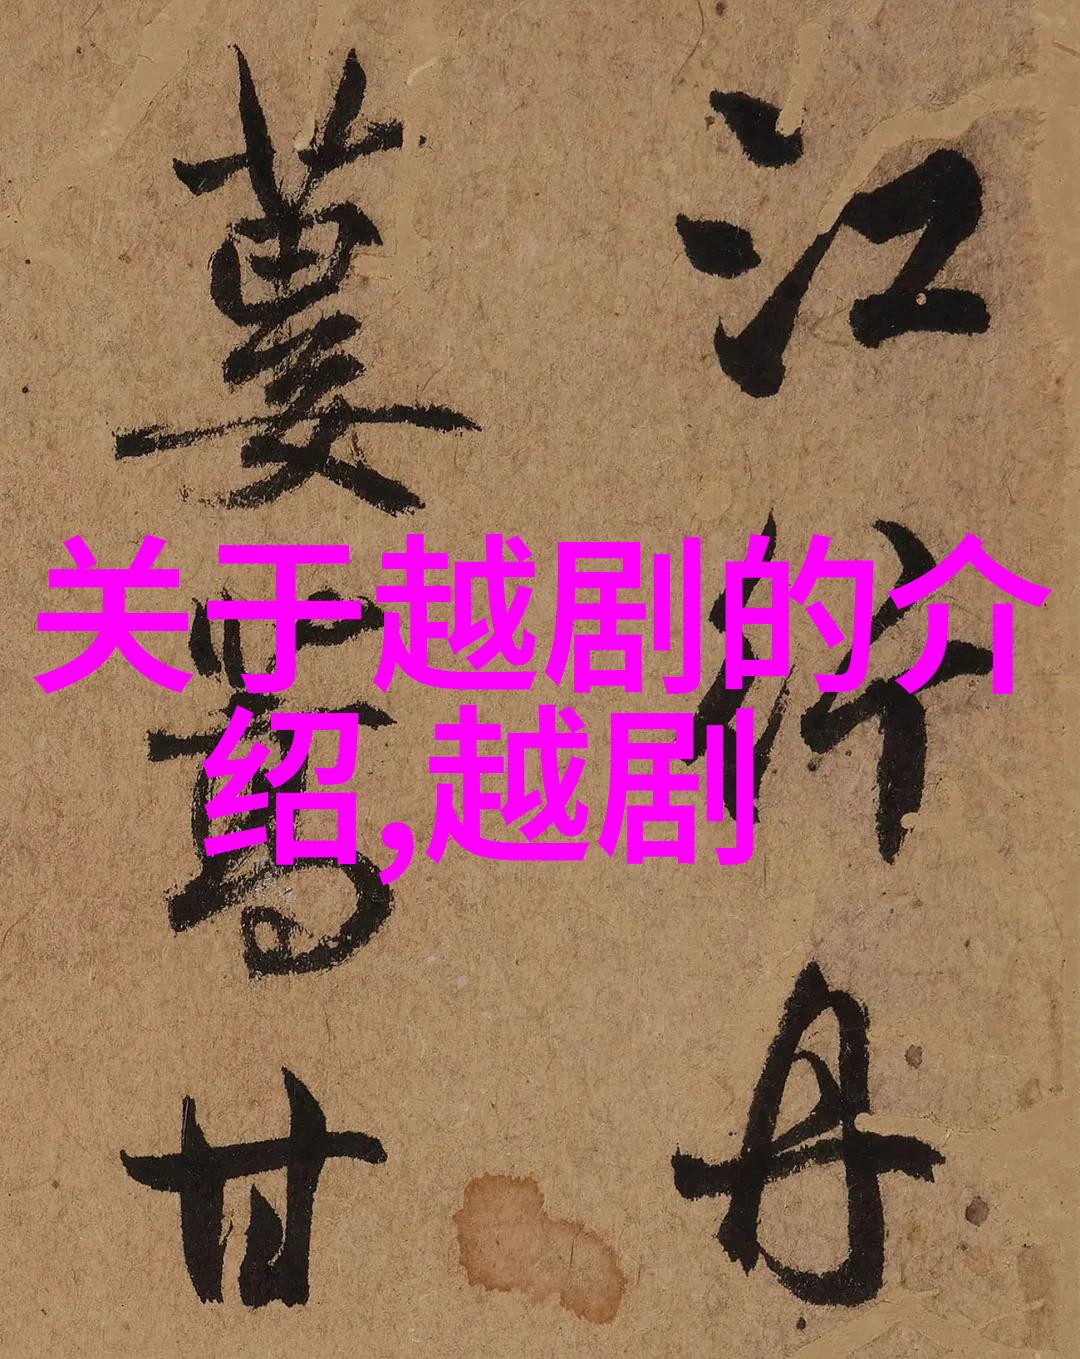 江行丹
蔓写甘
关于越剧的介
绍,越剧